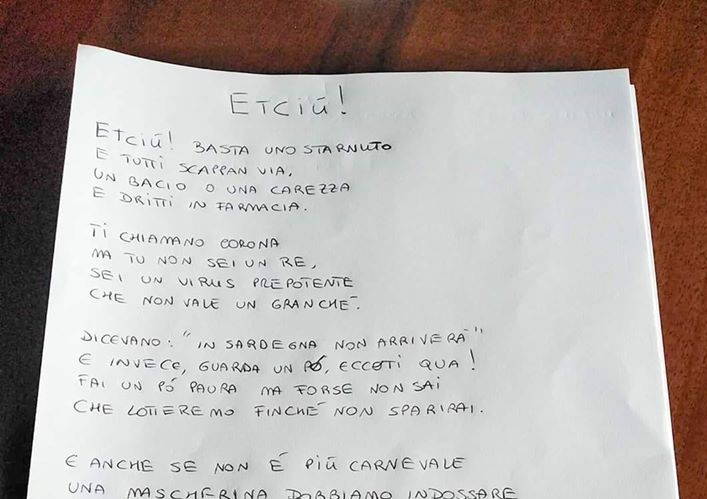 ETCIÚ!
ETCIÚ! BASTA UNO STARNUTO
E TUTTI SCAPPAN VIA,
UN BACIO O UNA CAREZZA
E DRITTI IN FARMACIA.
TI CHIAMANO CORONA
MA TU NON SEI UN RE,
SEI UN VIRUS PREPOTENTE
CHE NON VALE UN GRANCHÉ.
DICEVANO: "IN SARDEGNA NON ARRIVERÀ"
E INVECE, GUARDA UN PÓ, ECCOTI QUA!
FAI UN PÓ PAURA MA FORSE NON SAI
CHE LOTTEREMO FINCHÉ NON SPARIRAI.
E ANCHE SE NON É PIÚ CARNEVALE
UNA MASCHERINA DOBBIAMO INDOSSARE